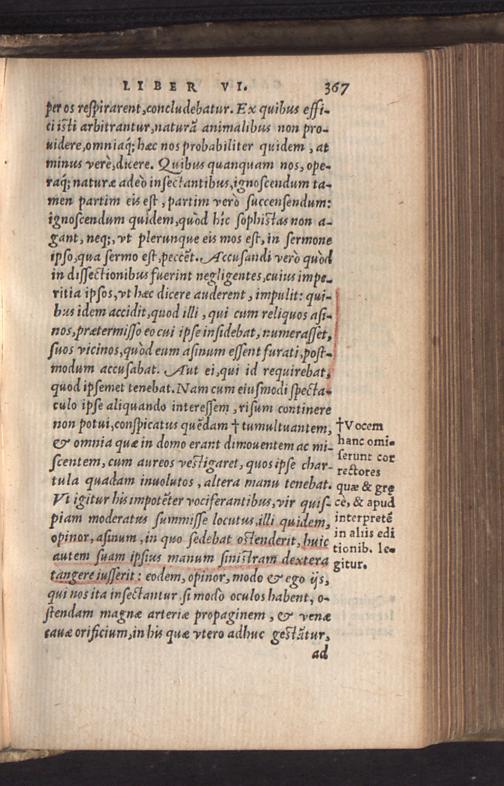 LIBER VI. 367
per os respirarent, concludebatur. Ex quibus effi-
ci isti arbitrantur, naturã animalibus non pro-
uidere, omniaq; hæc nos probabiliter quidem, at
minus verè, dicere. Quibus quanquam nos, ope-
raq; naturæ adeò insectantibus, ignoscendum ta-
men partim eis est, partim verò succensendum:
ignoscendum quidem, quòd hîc sophistas non a-
gant, neq;, vt plerunque eis mos est, in sermone
ipso, qua sermo est, peccẽt. Accusandi verò quòd
in dissectionibus fuerint negligentes, cuius impe-
ritia ipsos, vt hæc dicere auderent, impulit: qui-
bus idem accidit, quod illi, qui cum reliquos asi-
nos, prætermisso eo cui ipse insidebat, numerasset,
suos vicinos, quòd eum asinum essent furati, post-
modum accusabat. Aut ei, qui id requirebat,
quod ipsemet tenebat. Nam cum eiusmodi specta-
culo ipse aliquando interessem, risum continere
non potui, conspicatus quẽdam † tumultuantem,
& omnia quæ in domo erant dimouentem ac mi-
scentem, cum aureos vestigaret, quos ipse char-
tula quadam inuolutos, altera manu tenebat.
Vt igitur his impotẽter vociferantibus, vir quis-
piam moderatus summisse locutus, illi quidem,
opinor, asinum, in quo sedebat ostenderit, huic
autem suam ipsius manum sinistram dextera
tangere iusserit: eodem, opinor, modo & ego ijs,
qui nos ita insectantur, si modò oculos habent, o-
stendam magnæ arteriæ propaginem, & venæ
cauæ orificium, in his quæ vtero adhuc gestãtur,
ad
†Vocem
hanc omi-
serunt cor
rectores
quæ & grę
cè, & apud
interpretẽ
in aliis edi
tionib. le-
gitur.